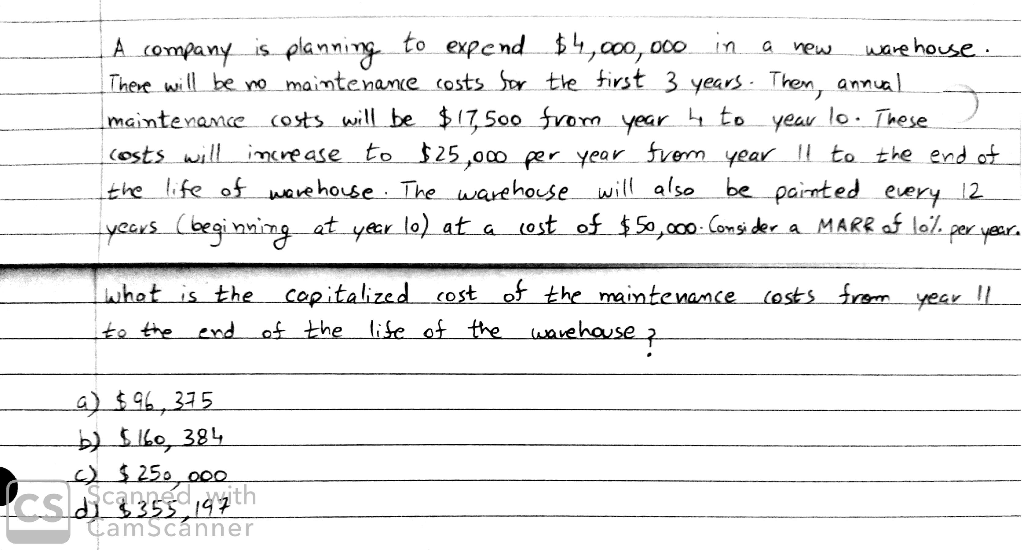 A company is planning to expend $4,000,000 in a new warehouse.
There will be no maintenance costs for the first 3 years. Then, annual
maintenance costs will be $17,500 from year 4 to year 10. These
costs will increase to $25,000 per year from year 11 to the end of
the life of warehouse. The warehouse will also be painted every 12
years (beginning at year 10) at a cost of $50,000. Consider a MARR of 10% per year.
What is the capitalized cost of the maintenance costs from year 11
to the end of the life of the warehouse?
a) $96,375
b) $160,384
c) $250,000
d) $355,197
CS Scanned with
CamScanner